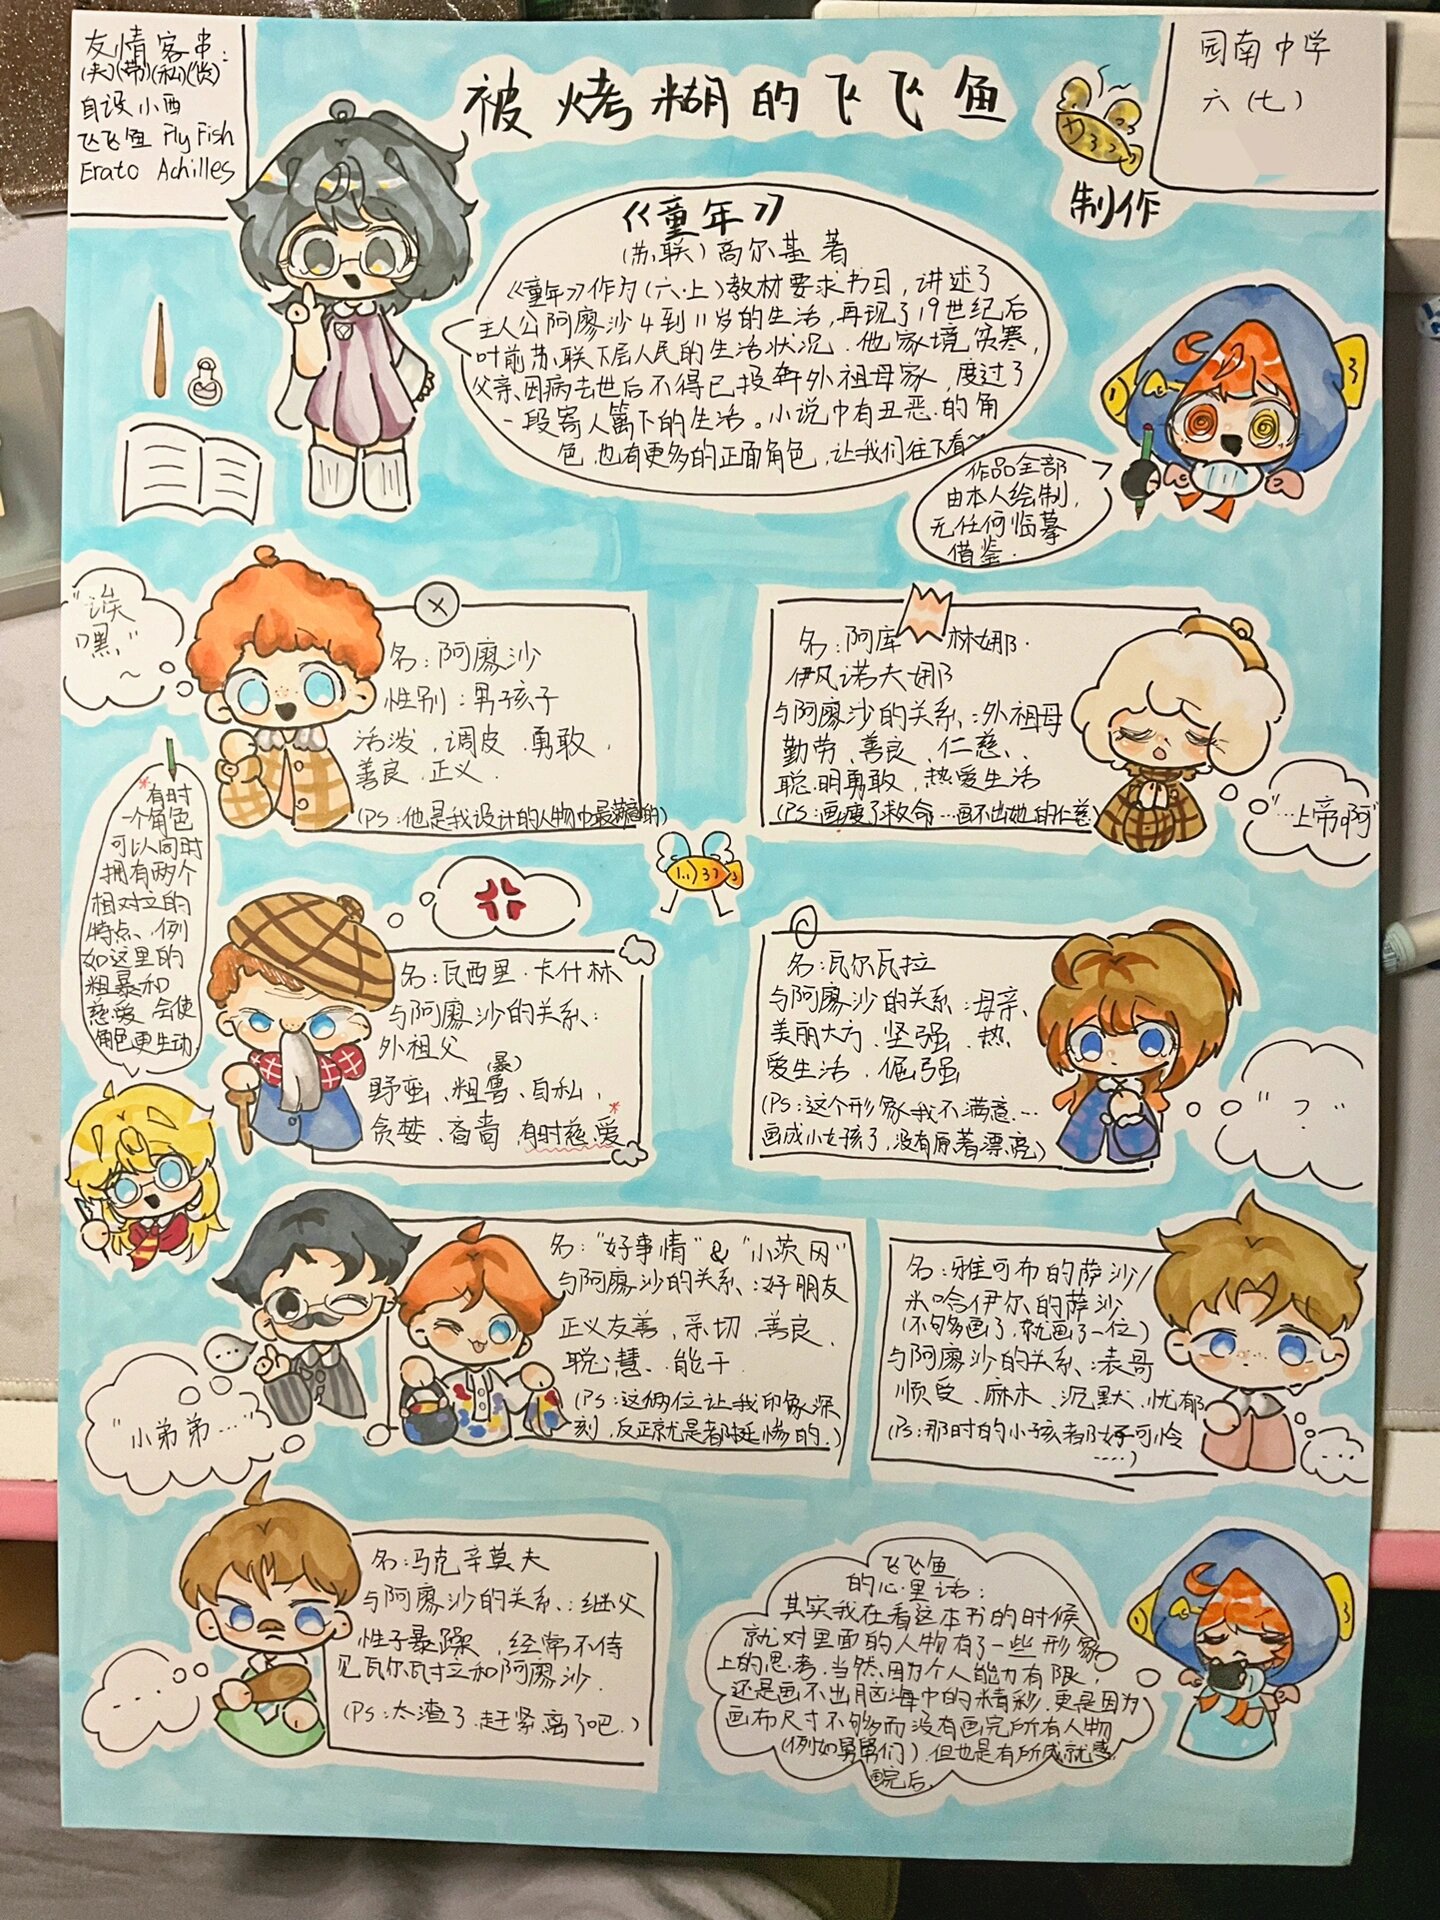 友情客串:
(夹)(带)(私)(货)
自设小西
飞飞鱼 Fly Fish
Erato Achilles
被烤糊的飞飞鱼
制作
园南中学
六(七)
《童年》
(苏联)高尔基 著
《童年》作为(六·上)教材要求书目,讲述了
主人公阿廖沙4到11岁的生活,再现了19世纪后
叶前苏联下层人民的生活状况.他家境贫寒,
父亲因病去世后不得已投奔外祖母家,度过了
一段寄人篱下的生活。小说中有丑恶的角
色,也有更多的正面角色,让我们往下看~
作品全部
由本人绘制,
无任何临摹
借鉴.
"诶
嘿"
~
名:阿廖沙
性别:男孩子
活泼、调皮、勇敢、
善良、正义.
(PS:他是我设计的人物中最满意的)
名:阿库 林娜·
伊凡诺夫娜
与阿廖沙的关系:外祖母
勤劳、善良、仁慈、
聪明勇敢、热爱生活
(PS:画瘦了救命…画不出她的仁慈)
"…上帝啊"
*有时
一个角色
可以同时
拥有两个
相对立的
特点,例
如这里的
粗暴和
慈爱,会使
角色更生动.
名:瓦西里·卡什林
与阿廖沙的关系:
外祖父
(暴)
野蛮、粗鲁、自私、
贪婪、吝啬,有时慈爱*
名:瓦尔瓦拉
与阿廖沙的关系:母亲
美丽大方、坚强、热
爱生活、倔强
(PS:这个形象我不满意…
画成小女孩了,没有原著漂亮)
"?"
名:"好事情"&"小茨冈"
与阿廖沙的关系:好朋友
正义友善、亲切、善良、
聪慧、能干
(PS:这俩位让我印象深
刻,反正就是都挺惨的.)
"小弟弟……"
名:雅可布的萨沙/
米哈伊尔的萨沙
(不够画了,就画了一位)
与阿廖沙的关系:表哥
顺受、麻木、沉默、忧郁
(PS:那时的小孩都好可怜
……)
…
名:马克辛莫夫
与阿廖沙的关系:继父
性子暴躁,经常不待
见瓦尔瓦拉和阿廖沙.
(PS:太渣了,赶紧离了吧.)
……
飞飞鱼
的心里话:
其实我在看这本书的时候
就对里面的人物有了一些形象
上的思考.当然,因为个人能力有限,
还是画不出脑海中的精彩.更是因为
画布尺寸不够多而没有画完所有人物
(例如舅舅们).但也是有所成就感
画完后.